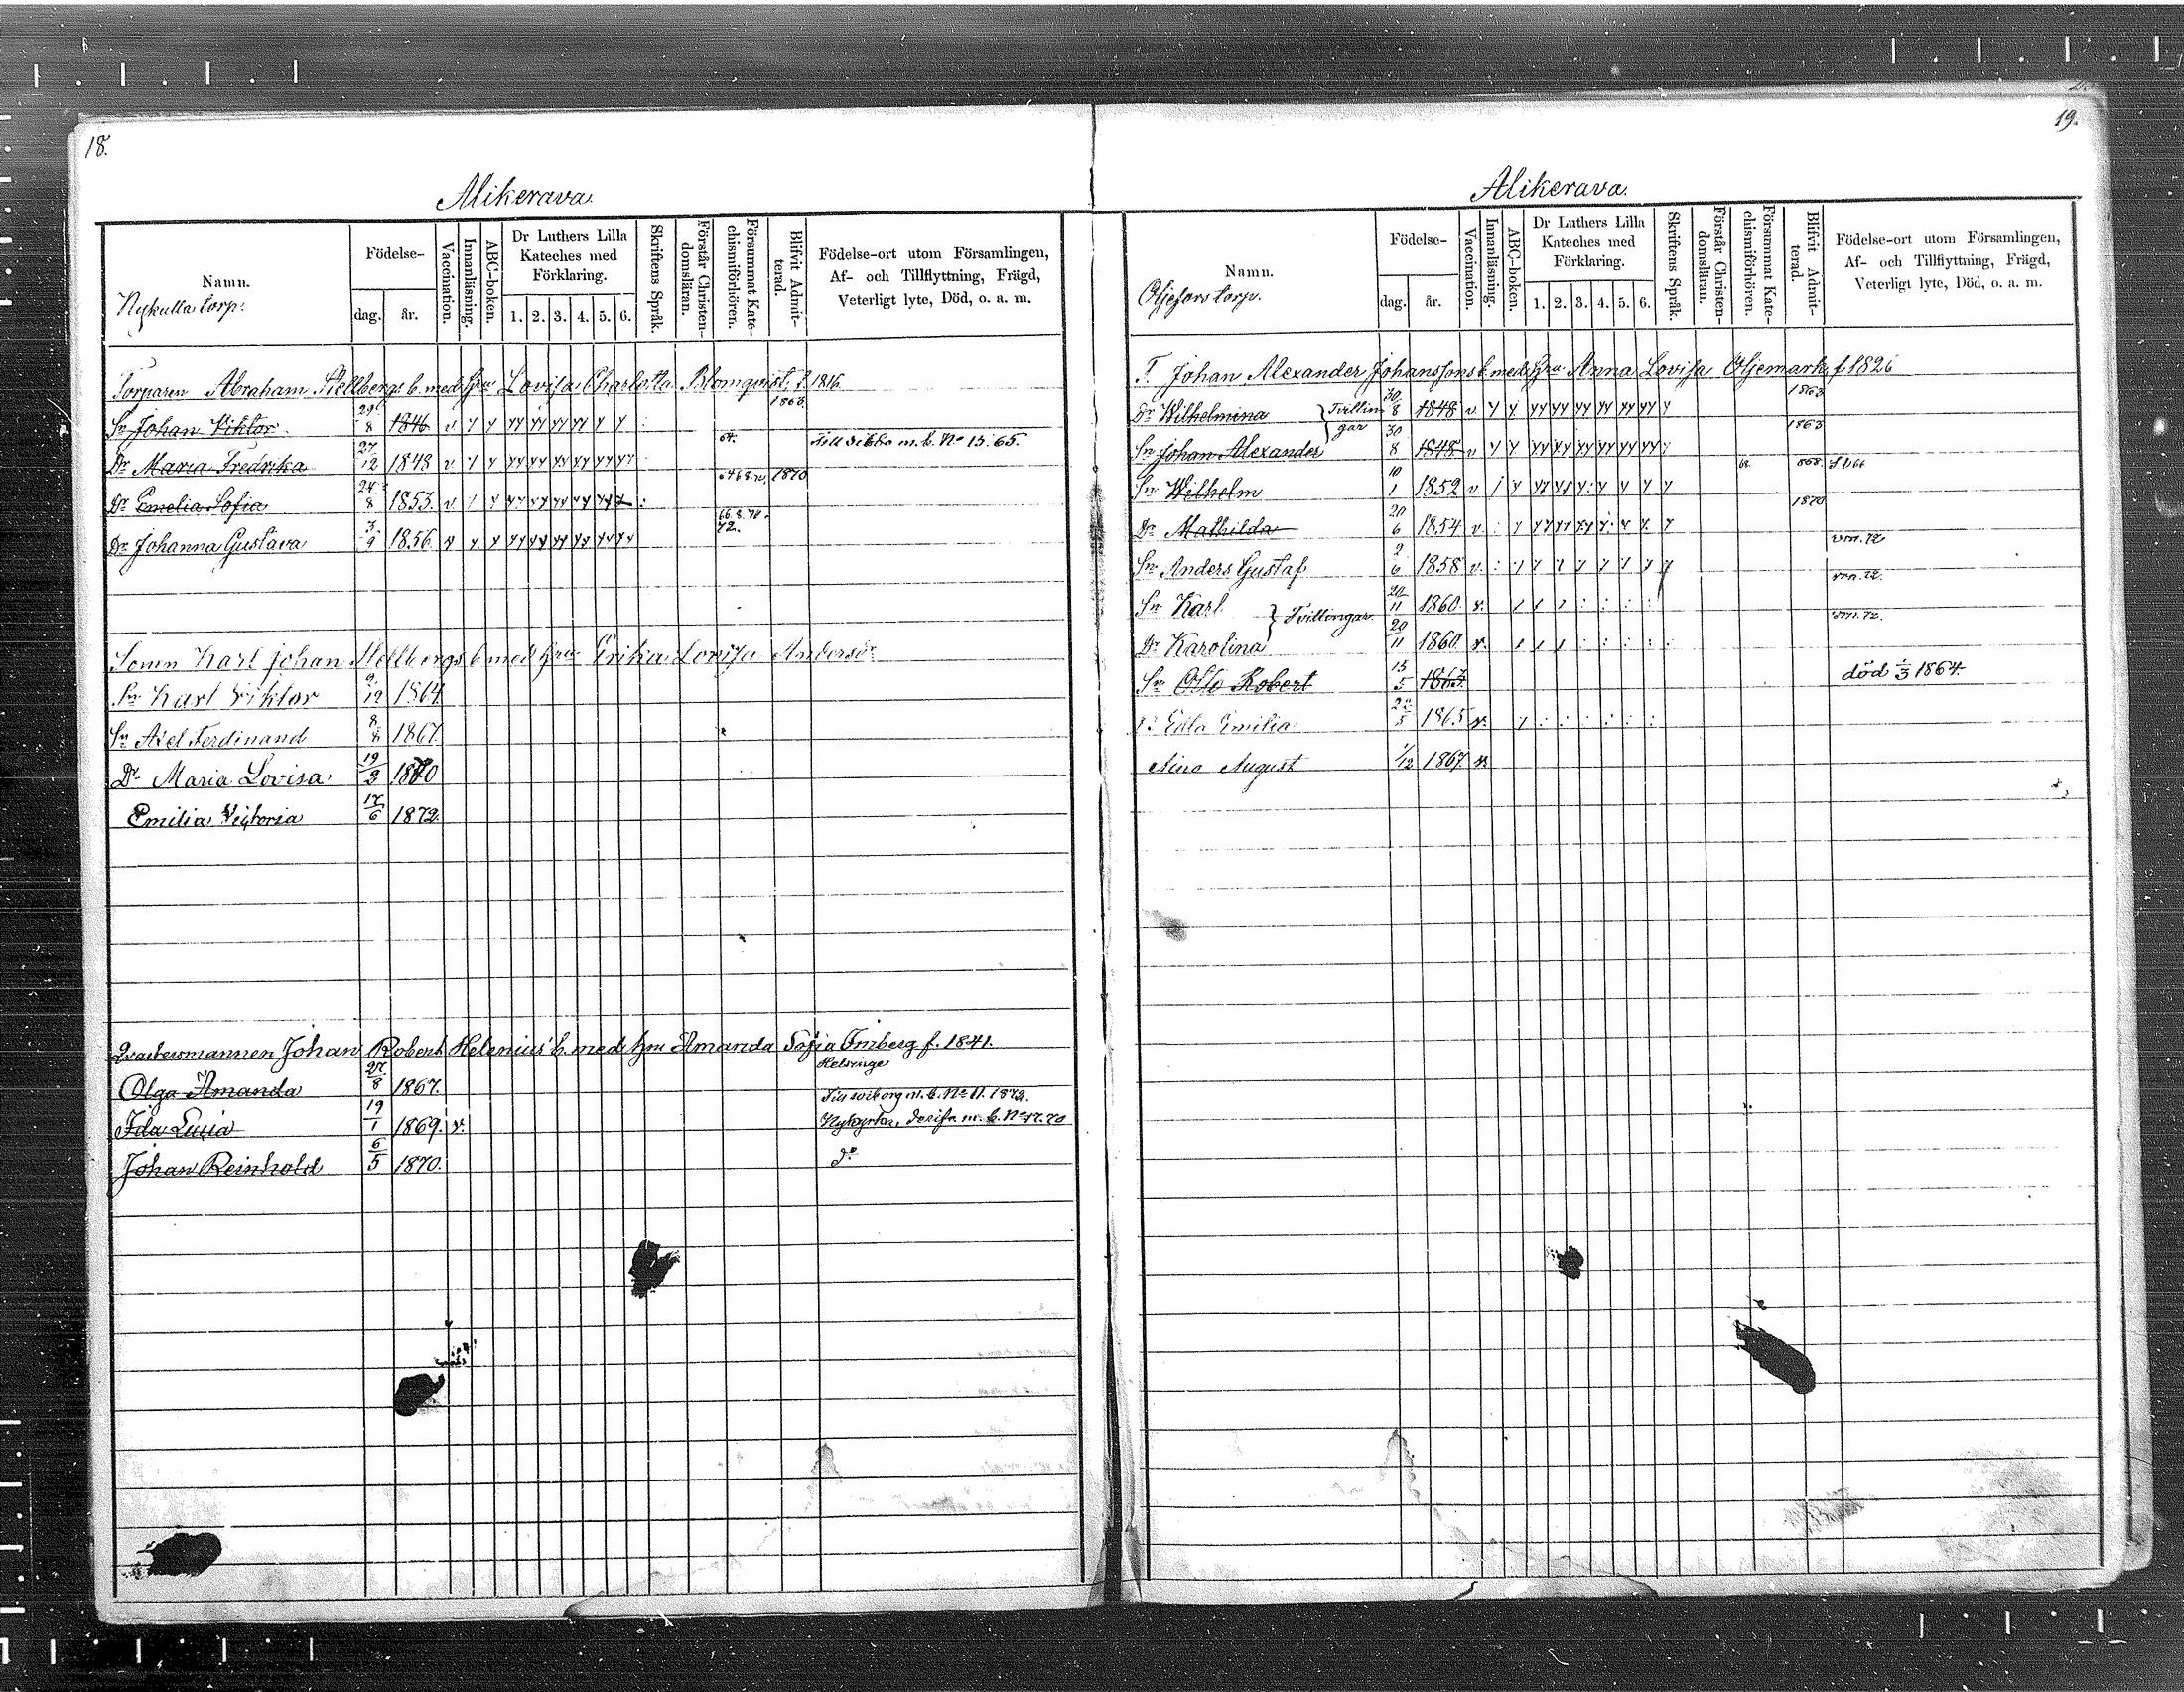 18.
Alikerava.
Namn.
Nykulla torp.
Födelse-
dag.
år.
Vaccination.
Innanläsning.
ABC-boken.
Dr Luthers Lilla
Kateches med
Förklaring.
1. 2. 3. 4. 5. 6.
Skriftens Språk.
Förstår Christen-
domsläran.
Försummat Kate-
chismiförhören.
Blifvit Admit-
terad.
Födelse-ort utom Församlingen,
Af- och Tillflyttning, Frägd,
Veterligt lyte, Död, o. a. m.
Torparen Abraham Mellbergs b. med hru Lovisa Charlotta Blomqvist f. 1816
Sn Johan Viktor 29/8 1846 v 1863.
Dr Maria Fredrika 27/12 1848 v 64. Till Sibbo m. b. No 13. 65.
Dr Emelia Sofia 24/8 1853. v 1870
Dr Johanna Gustava 3/9 1856. v 72.
Sonen Karl Johan Mellbergs b med hru Erika Lovisa Andersdr
Sn Karl Viktor 9/12 1864
Sn Axel Ferdinand 8/8 1867.
Dr Maria Lovisa 19/2 1870
Emilia Victoria 17/6 1872.
Qvartersmannen Johan Robert Helenius b. med hru Amanda Sofia Finberg f. 1841.
Helsinge
Olga Amanda 27/8 1867. Till Wiborg m. b. No 11. 1872.
Ida Lucia 19/1 1869. v. Nykyrka, m. b. No 17. 70
Johan Reinhold 6/5 1870. do
19.
Alikerava.
Namn.
Oljefors torp.
Födelse-
dag.
år.
Vaccination.
Innanläsning.
ABC-boken.
Dr Luthers Lilla
Kateches med
Förklaring.
1. 2. 3. 4. 5. 6.
Skriftens Språk.
Förstår Christen-
domsläran.
Försummat Kate-
chismiförhören.
Blifvit Admit-
terad.
Födelse-ort utom Församlingen,
Af- och Tillflyttning, Frägd,
Veterligt lyte, Död, o. a. m.
T. Johan Alexander Johanssons b. med hru Anna Lovisa Oljemark f 1826
Dr Wilhelmina } Tvillin 30/8 1848 v. 1863
Sn Johan Alexander } gar 30/8 1848 v 1863
Sn Wilhelm 10/1 1852 v. 68. 868.
Dr Mathilda 20/6 1854 v. 1870
Sn Anders Gustaf 2/6 1858 v. vm. 72
Sn Karl } Tvillingar. 20/11 1860. v. vm. 72.
Dr Karolina 20/11 1860. v. vm. 72.
Sn Otto Robert 15/5 1863. död /3 1864.
Dr Edla Emilia 22/5 1865 v.
Nino August 1/12 1867 v.